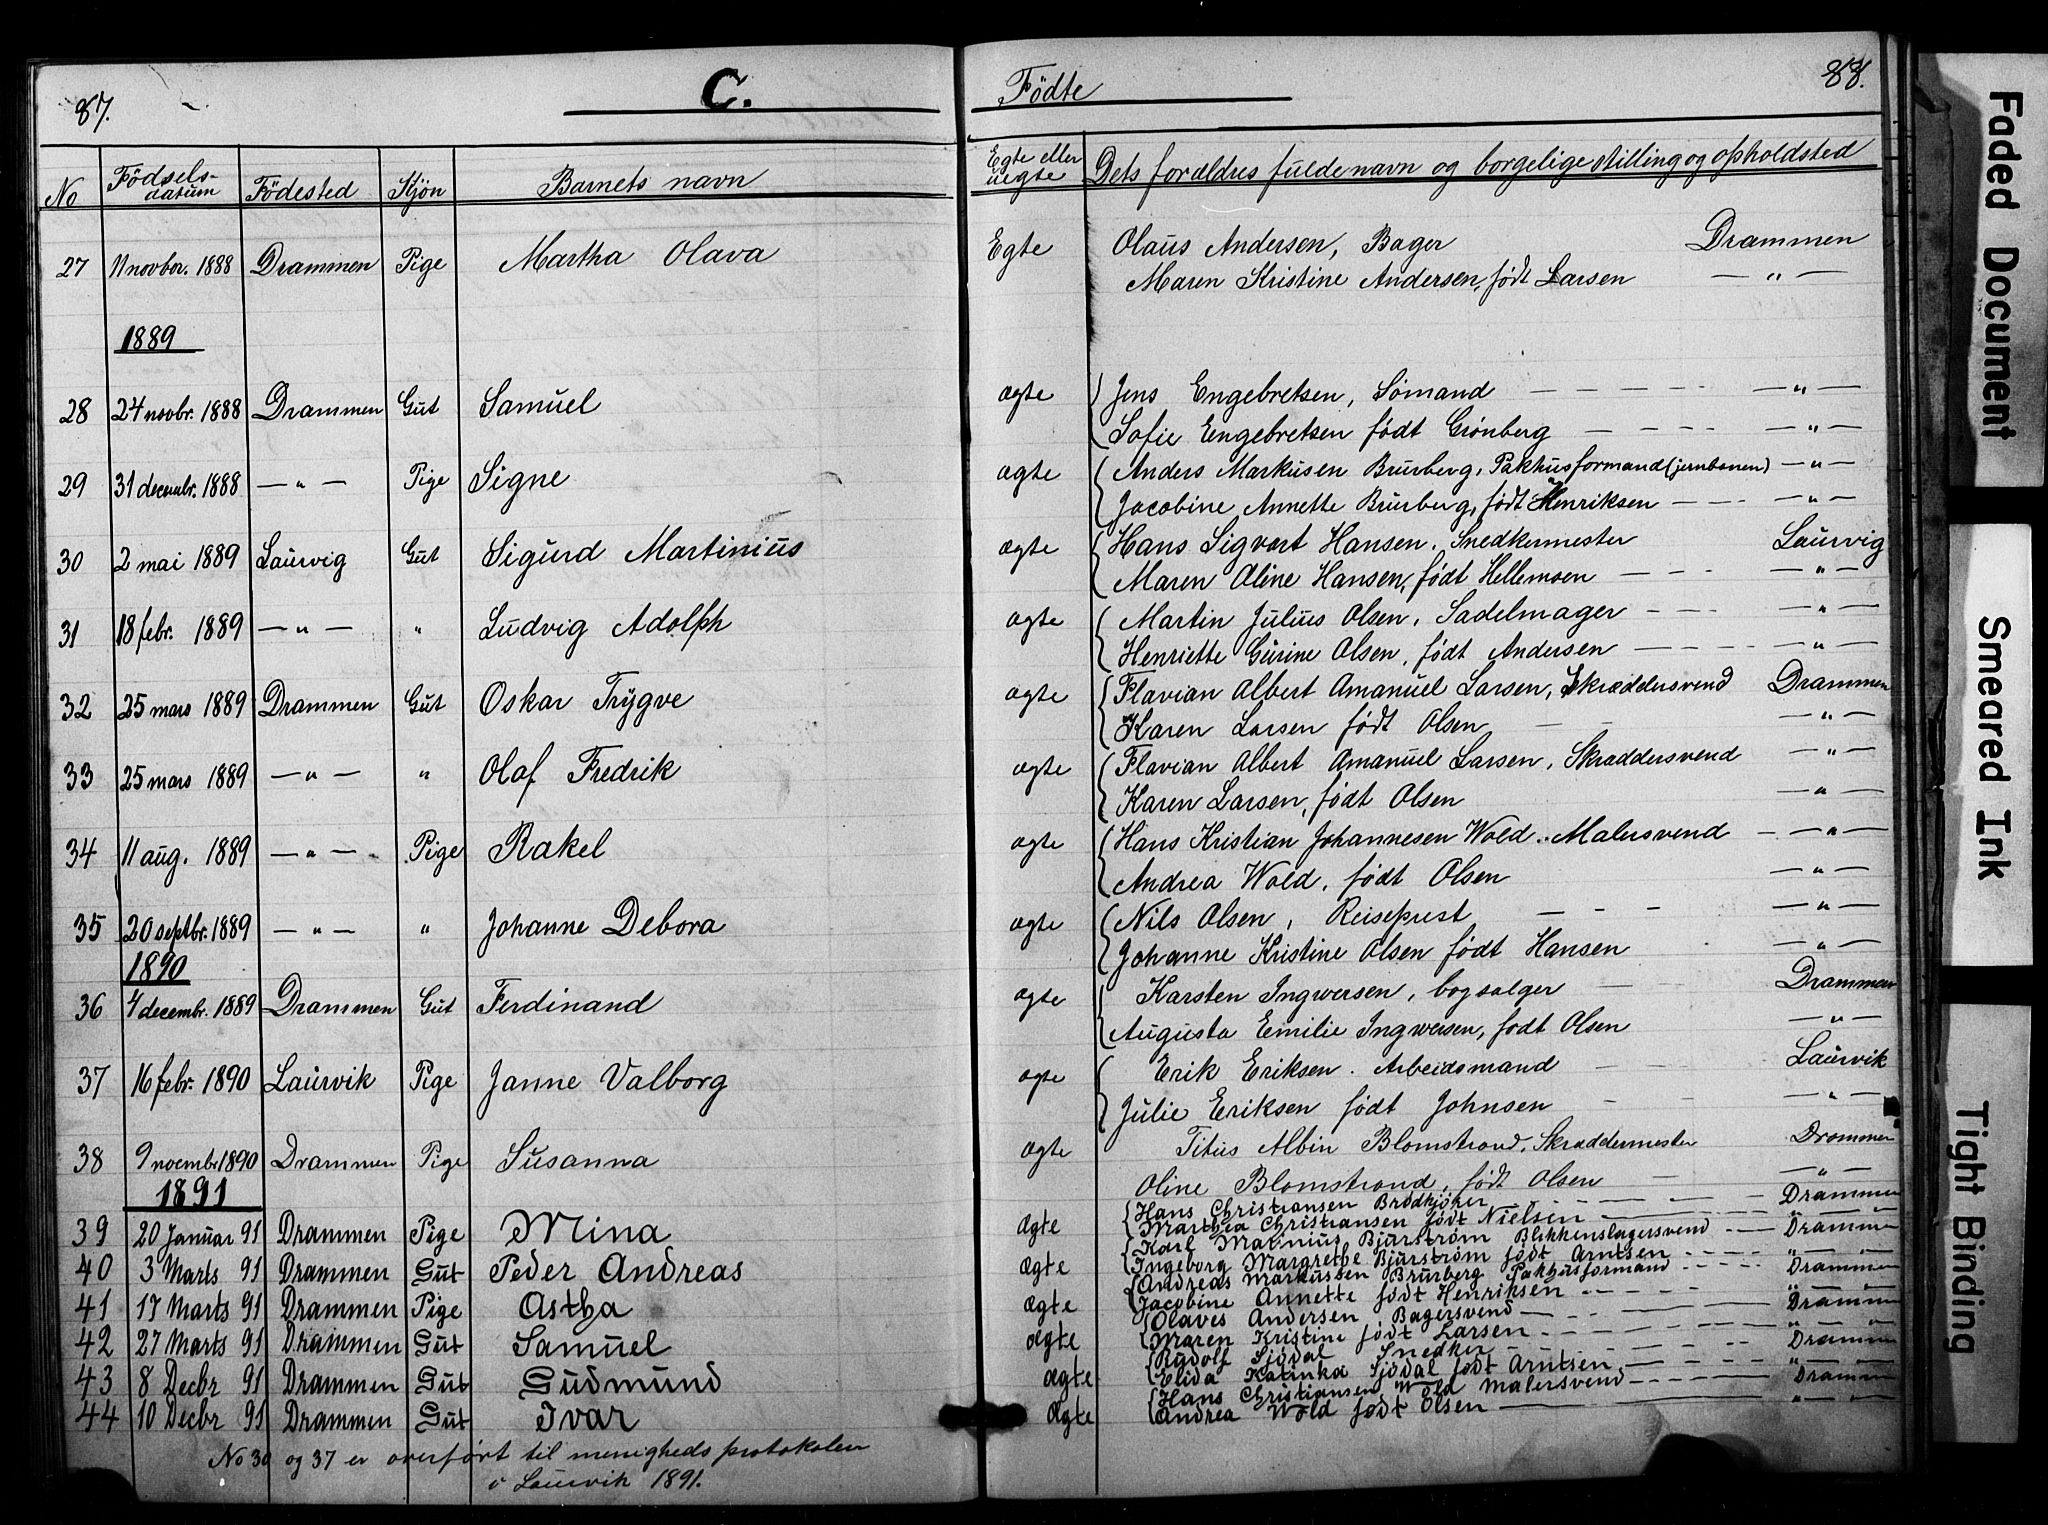 87.
C.
No
Fødsels-
datum
Fødested
Kjøn
Barnets navn
27 11 novbr. 1888 Drammen Pige Martha Olava
1889
28 24 novbr. 1888 Drammen Gut Samuel
29 31 decembr. 1888 — " — Pige Signe
30 2 mai 1889 Laurvig Gut Sigurd Martinius
31 18 febr. 1889 — " — " Ludvig Adolph
32 25 mars 1889 Drammen Gut Oskar Trygve
33 25 mars 1889 — " — " Olaf Fredrik
34 11 aug. 1889 — " — Pige Rakel
35 20 septbr. 1889 — " — " Johanne Debora
1890
36 4 decembr. 1889 Drammen Gut Ferdinand
37 16 febr. 1890 Laurvik Pige Janne Valborg
38 9 novembr 1890 Drammen Pige Susanna
1891
39 20 Januar 91 Drammen Pige Mina
40 3 Marts 91 Drammen Gut Peder Andreas
41 17 Marts 91 Drammen Pige Astha
42 27 Marts 91 Drammen Gut Samuel
43 8 Decbr 91 Drammen Gut Gudmund
44 10 Decbr 91 Drammen Gut Ivar
No 30 og 37 er overført til menigheds protokolen
i Laurvik 1891.
Fødte
88.
Egte eller
uegte
Dets forældres fulde navn og borgelige stilling og opholdsted
Egte Olaus Andersen, Bager Drammen
Maren Kristine Andersen, født Larsen — " —
ægte Jens Engebretsen, Sømand — " —
Sofie Engebretsen født Grønberg — " —
ægte Anders Markusen Brurberg, Pakhusformand (jernbanen) — " —
Jacobine Annette Brurberg, født Henriksen — " —
ægte Hans Sigvart Hansen, Snedkermester Laurvig
Maren Oline Hansen, født Hellemsen — " —
ægte Martin Julius Olsen, Sadelmager — " —
Henriette Gurine Olsen, født Andersen — " —
ægte Flavian Albert Amanuel Larsen, Skræddersvend Drammen
Karen Larsen født Olsen — " —
ægte Flavian Albert Amanuel Larsen, Skræddersvend — " —
Karen Larsen, født Olsen — " —
ægte Hans Kristian Johannesen Wold. Malersvend — " —
Andrea Wold, født Olsen — " —
ægte Nils Olsen, Reiseprest — " —
Johanne Kristine Olsen født Hansen — " —
ægte Karsten Ingwersen, bogsælger Drammen
Augusta Emilie Ingwersen, født Olsen — " —
ægte Erik Eriksen. Arbeidsmand Laurvik
Julie Eriksen født Johnsen — " —
ægte Titus Albin Blomstrand, Skræddermester Drammen
Oline Blomstrand, født Olsen — " —
Ægte Hans Christiansen Brødkjører Drammen
Marthea Christiansen født Nielsen " — "
Ægte Karl Marinius Bjurstrøm Blikkenslagersvend Drammen
Ingeborg Margrethe Bjurstrøm født Arntsen " — "
Ægte Andreas Markussen Brurberg Pakhusformand Drammen
Jacobine Annette født Henriksen " — "
Ægte Olaves Andersen Bagersvend Drammen
Maren Kristine født Larsen " — "
Ægte Rudolf Sjødal Snedker Drammen
Elida Katinka Sjødal født Arntsen " — "
Ægte Hans Christiansen Wold Malersvend Drammen
Andrea Wold født Olsen " — "
Faded Document
Smeared Ink
Tight Binding